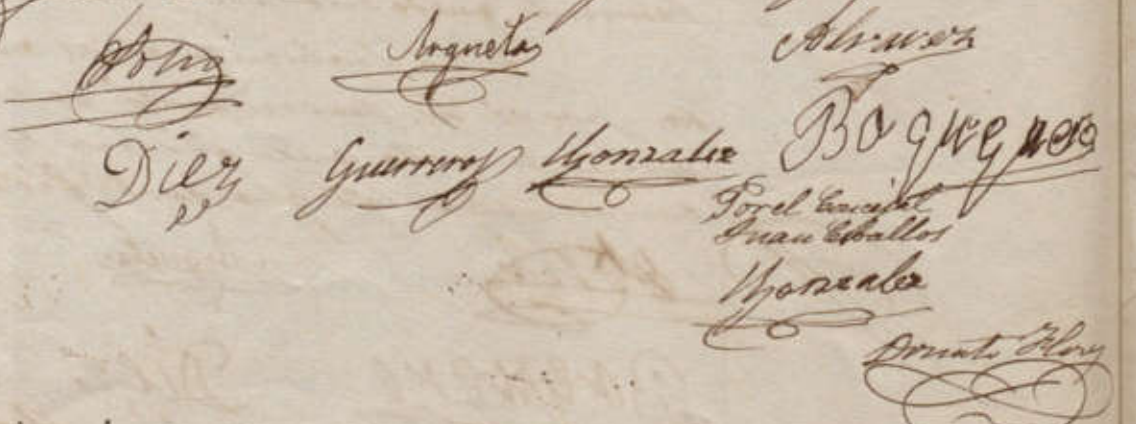 Argueta Alvarez
Diez Guerrero Gonzalez
Por el Concejal
Juan Ceballos
Gonzalez
Donato Flores